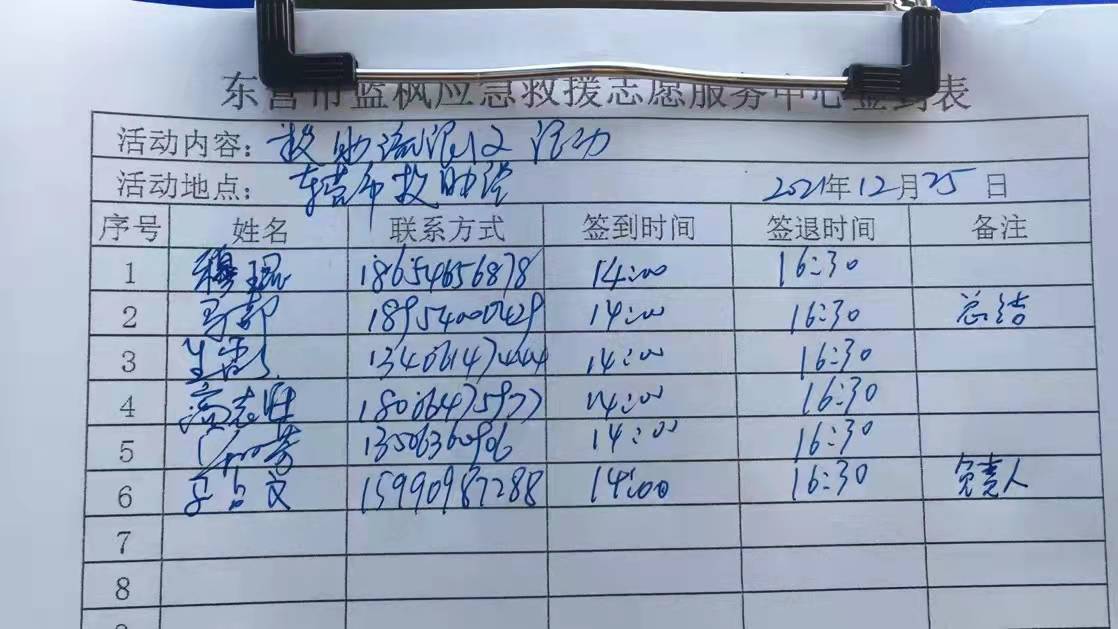 东营市蓝枫应急救援志愿服务中心签到表
活动内容: 救助流浪人 活动
活动地点: 东营市救助站 2021年12月25日
序号 姓名 联系方式 签到时间 签退时间 备注
1 穆琨 18654656878 14:00 16:30
2 18954000429 14:00 16:30 总结
3 13406147444 14:00 16:30
4 高志胜 18006475977 14:00 16:30
5 13506360906 14:00 16:30
6 15990987288 14:00 16:30 负责人
7
8